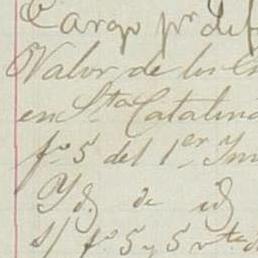 Cargo pr. def
Valor de los
en Sta. Catalina
fo. 5 del 1er. Inv
Yd. de id
s/ fo. 5 y 5 vta. d